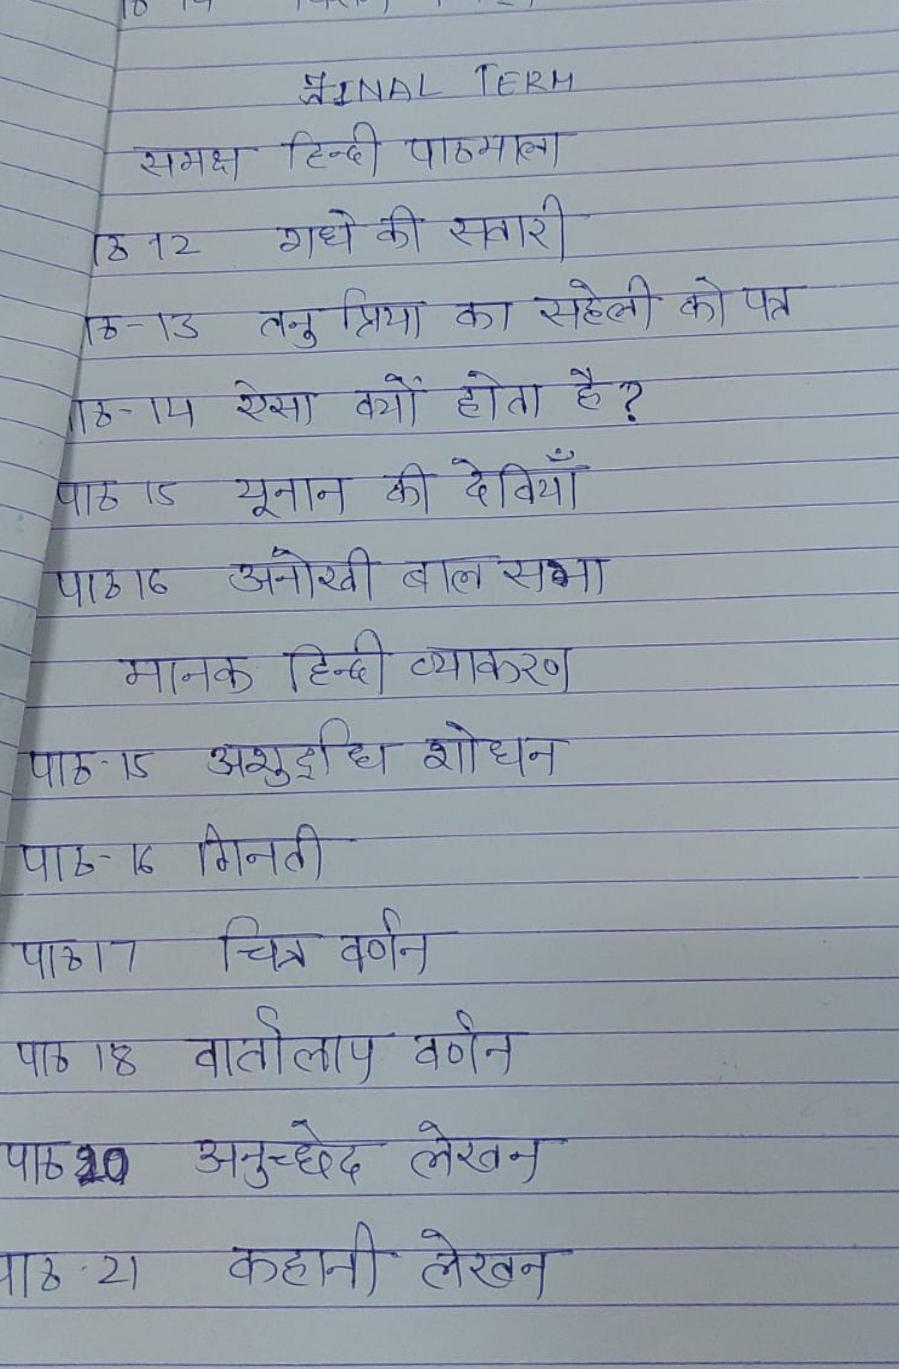 FINAL TERM
समक्ष हिन्दी पाठमाला
ाठ 12 गधे की सवारी
ाठ-13 तनु प्रिया का सहेली को पत्र
ाठ-14 ऐसा क्यों होता है?
पाठ 15 यूनान की देवियाँ
पाठ 16 अनोखी बाल सभा
मानक हिन्दी व्याकरण
पाठ-15 अशुद्धि शोधन
पाठ-16 गिनती
पाठ 17 चित्र वर्णन
पाठ 18 वार्तालाप वर्णन
पाठ 20 अनुच्छेद लेखन
पाठ-21 कहानी लेखन